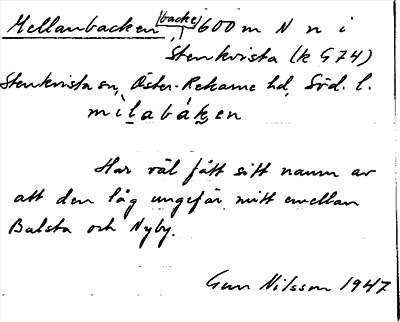 Mellanbacken, backe, 600 m N n i
Stenkvista (k G74)
Stenkvista sn, Öster-Rekarne hd, Söd. l.
mìlabáken
Har väl fått sitt namn av
att den låg ungefär mitt emellan
Balsta och Nyby.
Gun Nilsson 1947